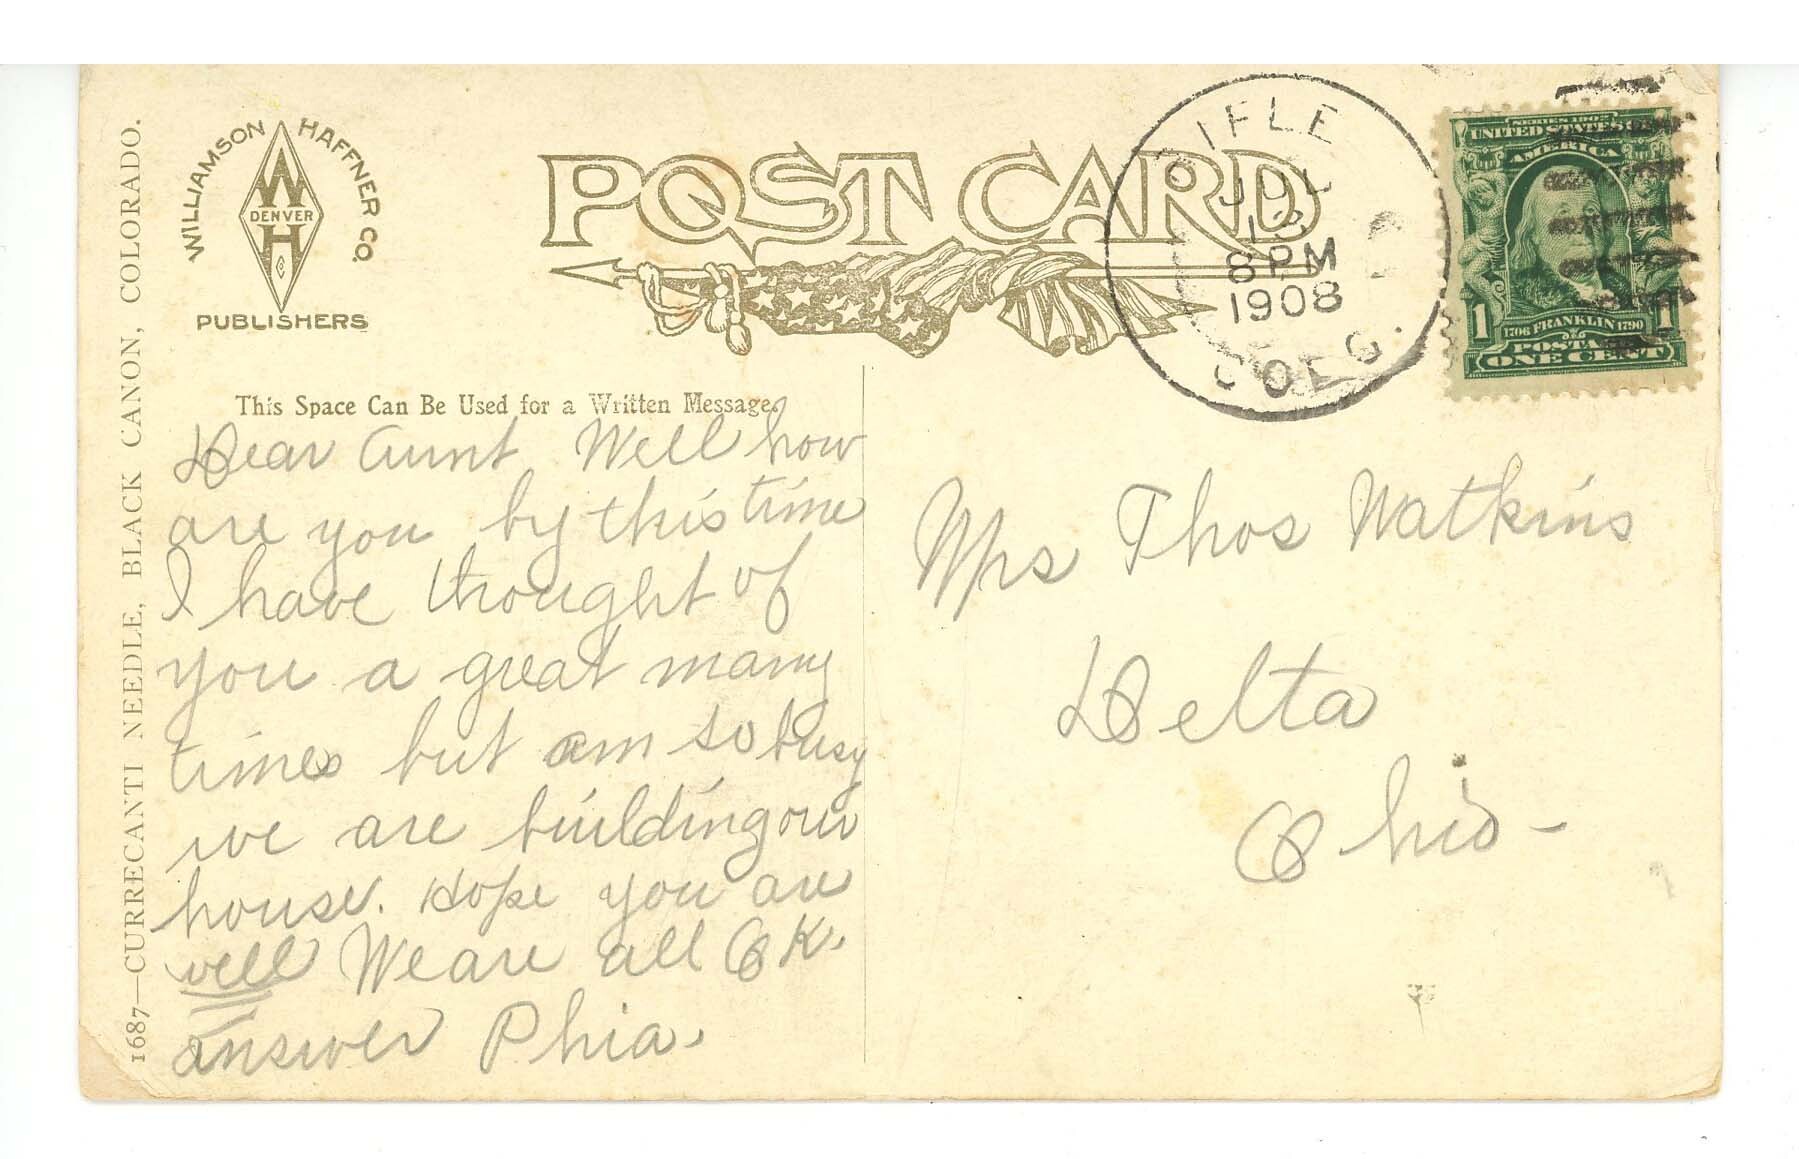 WILLIAMSON HAFFNER CO.
W
DENVER
H
Co
PUBLISHERS
POST CARD
RIFLE
JUL
13
8 PM
1908
COLO.
SERIES 1902
UNITED STATES OF
AMERICA
1 1
1706 FRANKLIN 1790
POSTAGE
ONE CENT
1687—CURRECANTI NEEDLE, BLACK CANON, COLORADO.
This Space Can Be Used for a Written Message.
Dear Aunt Well how
are you by this time
I have thought of
you a great many
times but am so busy
we are building our
house. Hope you are
well We are all OK.
answer Phia.
Mrs Thos Watkins
Delta
Ohio-